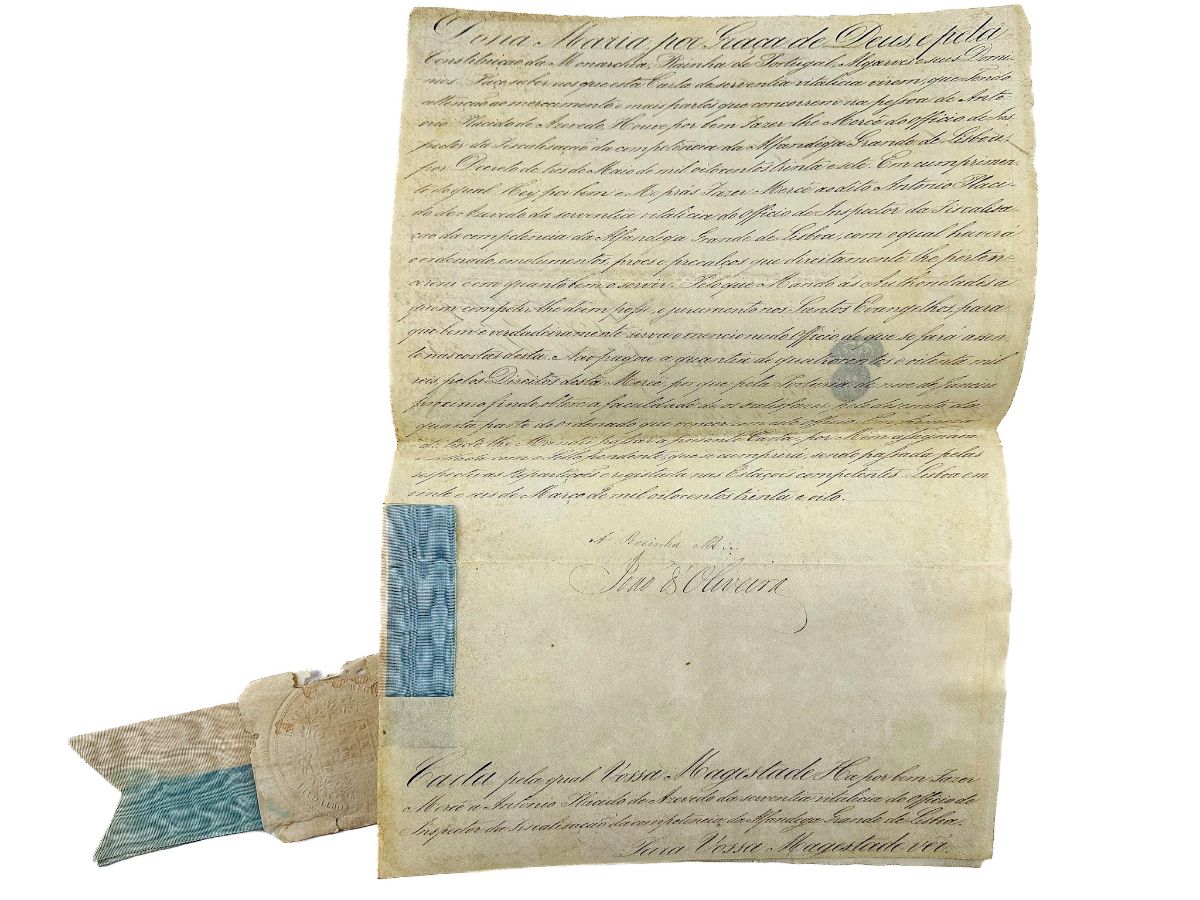 Dona Maria por Graça de Deus, e pela
Constituição da Monarchia, Rainha de Portugal, Algarves e seus Domi-
nios. Faço saber aos que esta Carta de serventia vitalicia virem, que Tendo
attenção ao merecimento e mais partes que concorrem na pessoa de Anto-
nio Placido de Azevedo, Houve por bem Fazer-lhe Mercê do officio de Ins-
pector da Fiscalisação da competencia da Alfandega Grande de Lisboa,
por Decreto de tres de Maio de mil oitocentos trinta e sete. Em cumprimen-
to do qual Hey por bem e Me prás Fazer Mercê ao dito Antonio Placi-
do de Azevedo da serventia vitalicia do Officio de Inspector da Fiscalisa-
ção da competencia da Alfandega Grande de Lisboa, com o qual haverá
o ordenado, emolumentos, próes e precalços que direitamente lhe perten-
cerem em quanto bem o servir. Pelo que Mando ás Authoridades a
quem competir lhe dêem posse, e juramento nos Santos Evangelhos, para
que bem e verdadeiramente serva o mencionado Officio de que se fará assen-
to nas costas desta. Não pagou a quantia de quatrocentos e oitenta mil
reis pelos Direitos desta Mercê por que pela Portaria de nove de Janeiro
proximo findo obteve a faculdade de os satisfazer pelo desconto da
quarta parte do ordenado que vencer com dito officio. Em firmeza
do que lhe Mandei passar a presente Carta por Mim assignada
com o sello pendente, que se cumprirá, sendo passada pelas
respectivas Repartições e registada nas Estações competentes. Lisboa em
vinte e seis de Março de mil oitocentos trinta e oito.
A Rainha
João d'Oliveira
Carta pela qual Vossa Magestade Ha por bem Fazer
Mercê a Antonio Placido de Azevedo da serventia vitalicia do Officio de
Inspector da Fiscalisação da competencia da Alfandega Grande de Lisboa.
Para Vossa Magestade ver.